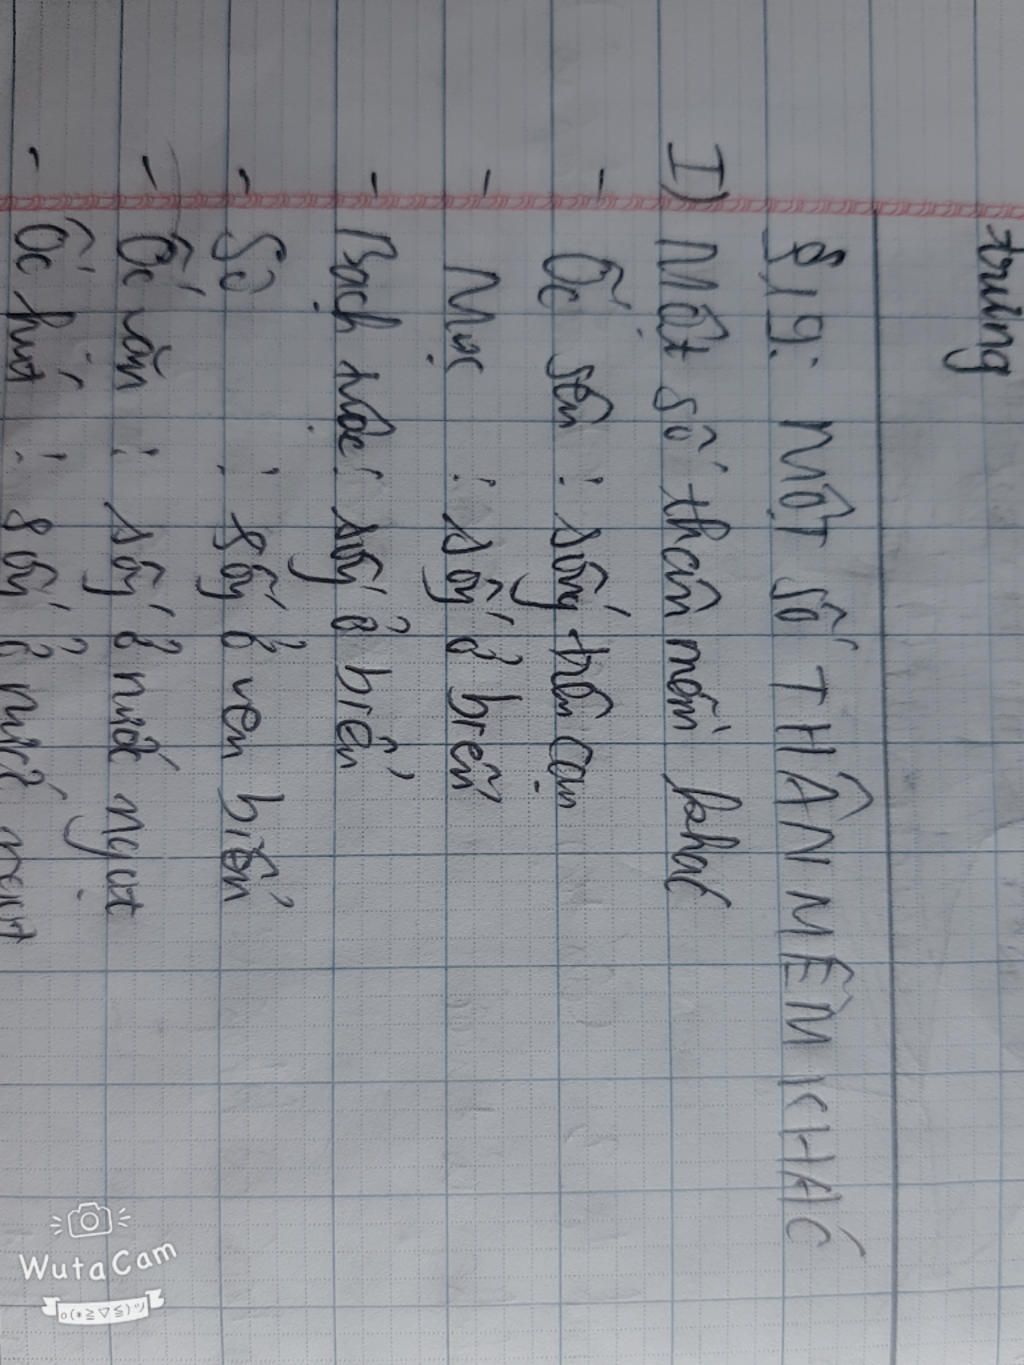 trùng
§19: MỘT SỐ THÂN MỀM KHÁC
I) Một số thân mềm khác
- Ốc sên : sống trên cạn
- Mực : sống ở biển
- Bạch tuộc : sống ở biển
- Sò : sống ở ven biển
- Ốc vặn : sống ở nước ngọt
- Ốc hút : sống ở nước
WutaCam
o(*≧▽≦)ツ